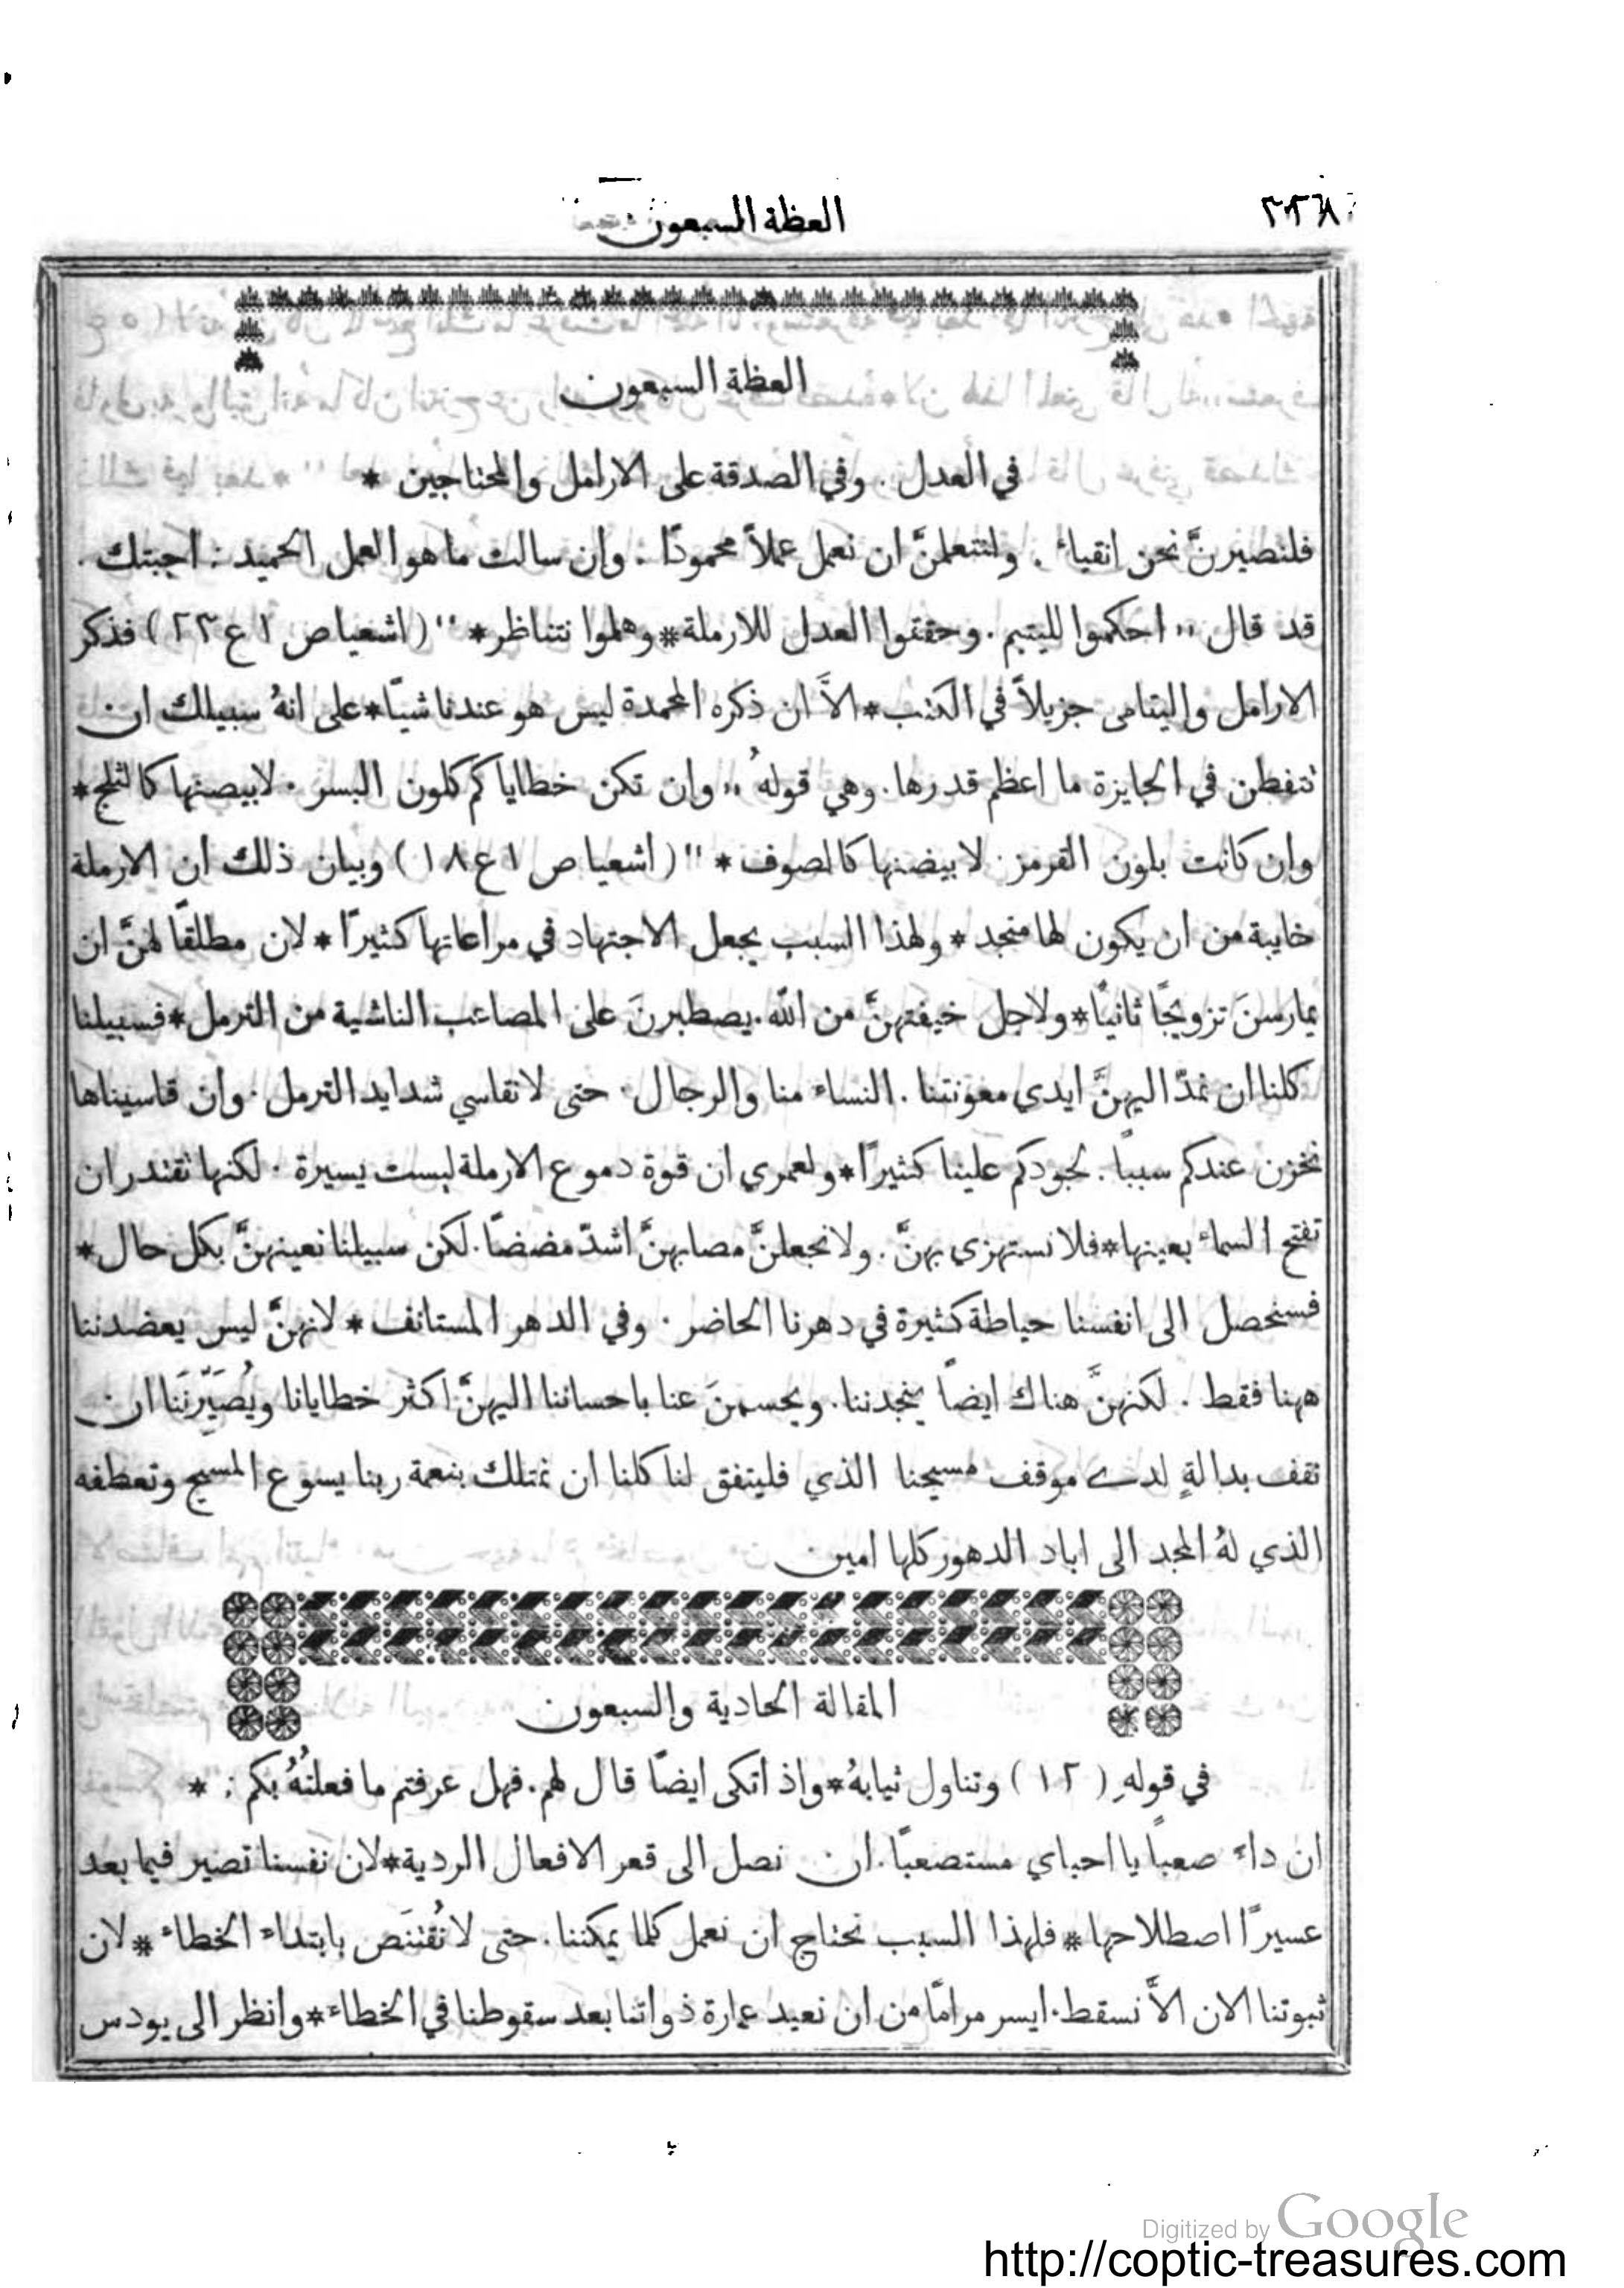 العظة السبعون
العظة السبعون
في العدل . وفي الصدقة على الارامل والمحتاجين *
فلنصيرنَّ نحن انقياء . ولنتعلمنَّ ان نعمل عملاً محمودًا . وان سالت ما هو العمل الحميد : اجبتك .
قد قال ,, احكموا لليتيم . وحققوا العدل للارملة * وهلموا نتناظر * " ( اشعيا ص ١ ع ٢٣ ) فذكر
الارامل واليتامى جزيلاً في الكتب * الاَّ ان ذكره المحمدة ليس هو عندنا شيًا * على انهُ سبيلك ان
تتفطن في الجايزة ما اعظم قدرها . وهي قولهُ ,, وان تكن خطاياكم كلون البسر . لابيضنها كالثلج *
وان كانت بلون القرمز . لابيضنها كالصوف * " ( اشعيا ص ١ ع ١٨ ) وبيان ذلك ان الارملة
خايبة من ان يكون لها منجد * ولهذا السبب يجعل الاجتهاد في مراعاتها كثيرًا * لان مطلقًا لهنَّ ان
يمارسنَ تزويجًا ثانيًا * ولاجل خيفتهنَّ من الله . يصطبرنَ على المصاعب الناشية من الترمل * فسبيلنا
كلنا ان نمدّ اليهنَّ ايدي معونتنا . النساء منا والرجال . حتى لا نقاسي شدايد الترمل . وان قاسيناها
نخزن عندكم سببًا . لجودكم علينا كثيرًا * ولعمري ان قوة دموع الارملة ليست يسيرة . لكنها تقتدر ان
تفتح السماء بعينها * فلا نستهزي بهنَّ . ولا نجعلنَّ مصابهنَّ اشدّ مضضًا . لكن سبيلنا نعينهنَّ بكل حال *
فسنحصل الى انفسنا حياطة كثيرة في دهرنا الحاضر . وفي الدهر المستانف * لانهنَّ ليس يعضدننا
ههنا فقط . لكنهنَّ هناك ايضاً ينجدننا . ويحسمنَ عنا باحساننا اليهنَّ اكثر خطايانا ويُصَيِّرْنَنا ان
نقف بدالةٍ لدى موقف مسيحنا الذي فليتفق لنا كلنا ان نمتلك بنعمة ربنا يسوع المسيح وتعطفه
الذي لهُ المجد الى اباد الدهور كلها امين
المقالة الحادية والسبعون
في قولهِ ( ١٢ ) وتناول ثيابهُ * واذ اتكى ايضًا قال لهم . فهل عرفتم ما فعلتُهُ بكم : *
ان داء صعباً يا احباي مستصعبًا . ان نصل الى قعر الافعال الردية * لان نفسنا تصير فيما بعد
عسيرًا اصطلاحها * فلهذا السبب نحتاج ان نعمل كلما يمكننا . حتى لا نُقْتَنَص بابتداء الخطاء * لان
ثبوتنا الان الاَّ نسقط . ايسر مرامًا من ان نعيد عمارة ذواتنا بعد سقوطنا في الخطاء * وانظر الى يودس
Digitized by Google
http://coptic-treasures.com